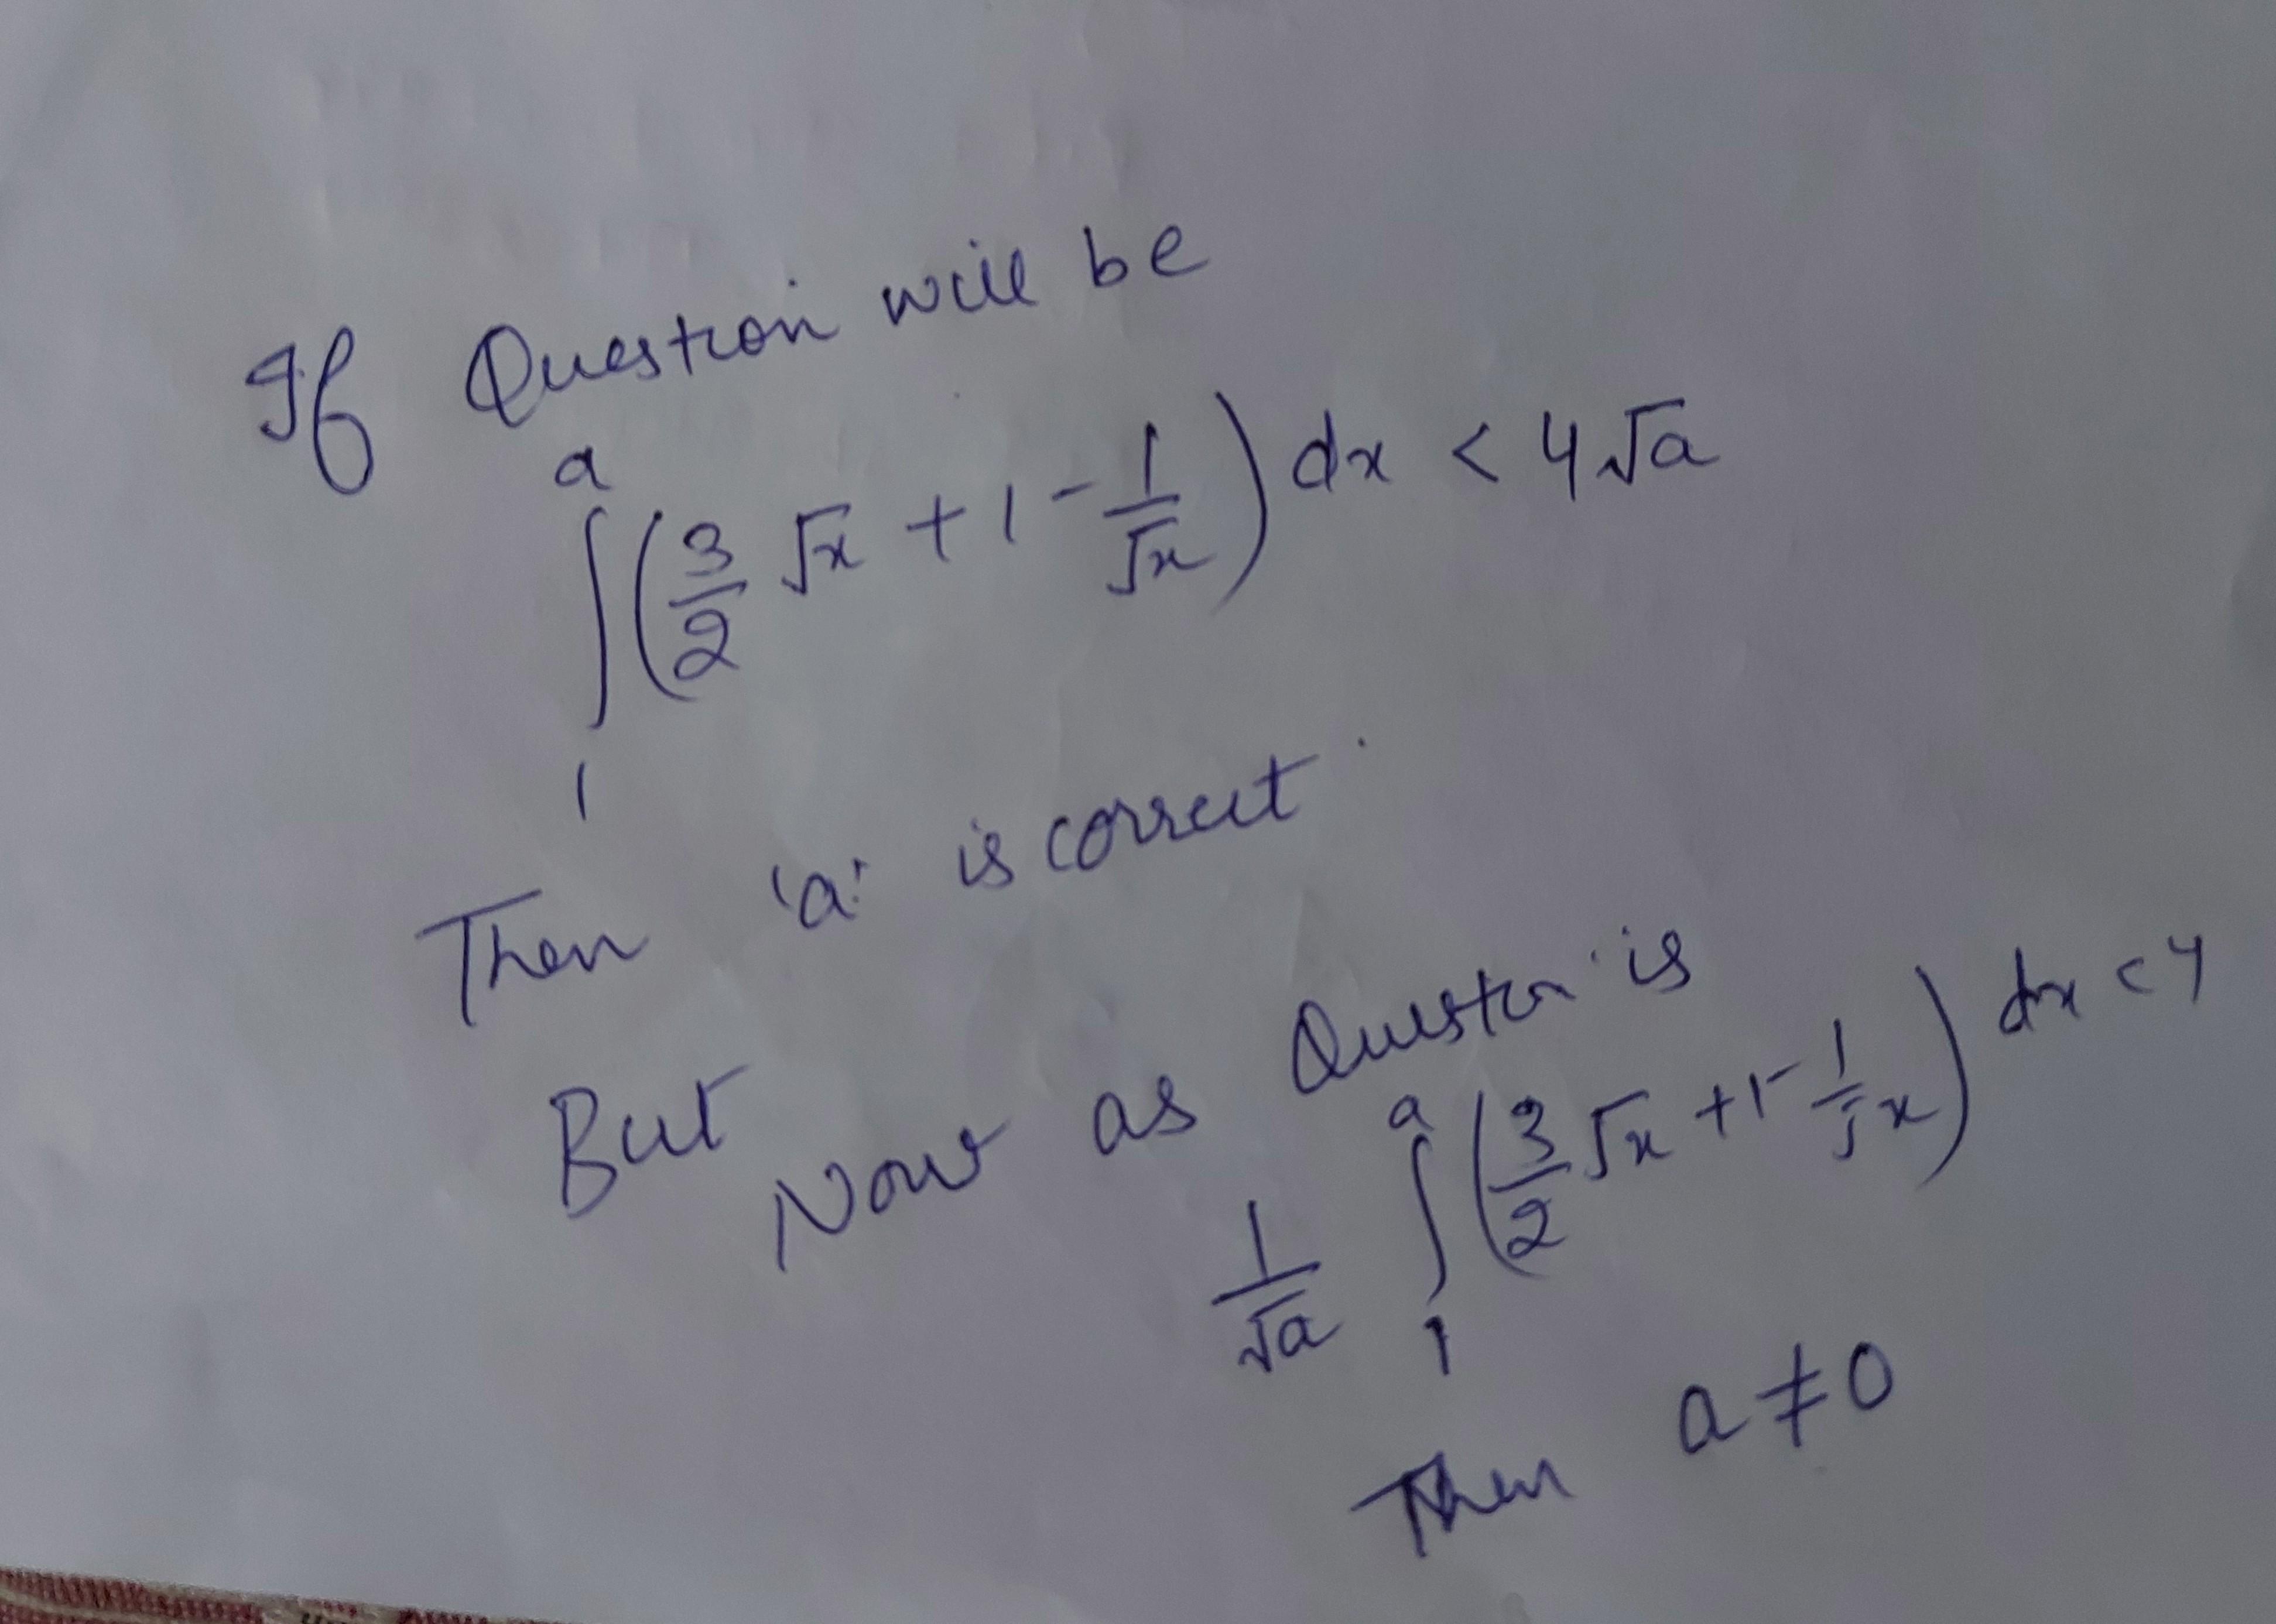 If Question will be
∫₁ᵃ (3/2 √x + 1 - 1/√x) dx < 4√a
Then 'a' is correct
But Now as Question is
1/√a ∫₁ᵃ (3/2 √x + 1 - 1/√x) dx < 4
Then a ≠ 0